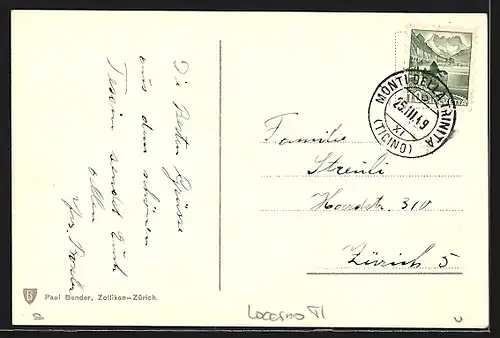 Die Besten Grüsse
aus dem schönen
Tessin sendet Euch
allen
MONTI DELLA TRINITA
25.III.49
XI
(TICINO)
Familie
Streuli
Hardstr. 310
Zürich 5
Paul Bender, Zollikon-Zürich.
Locarno TI